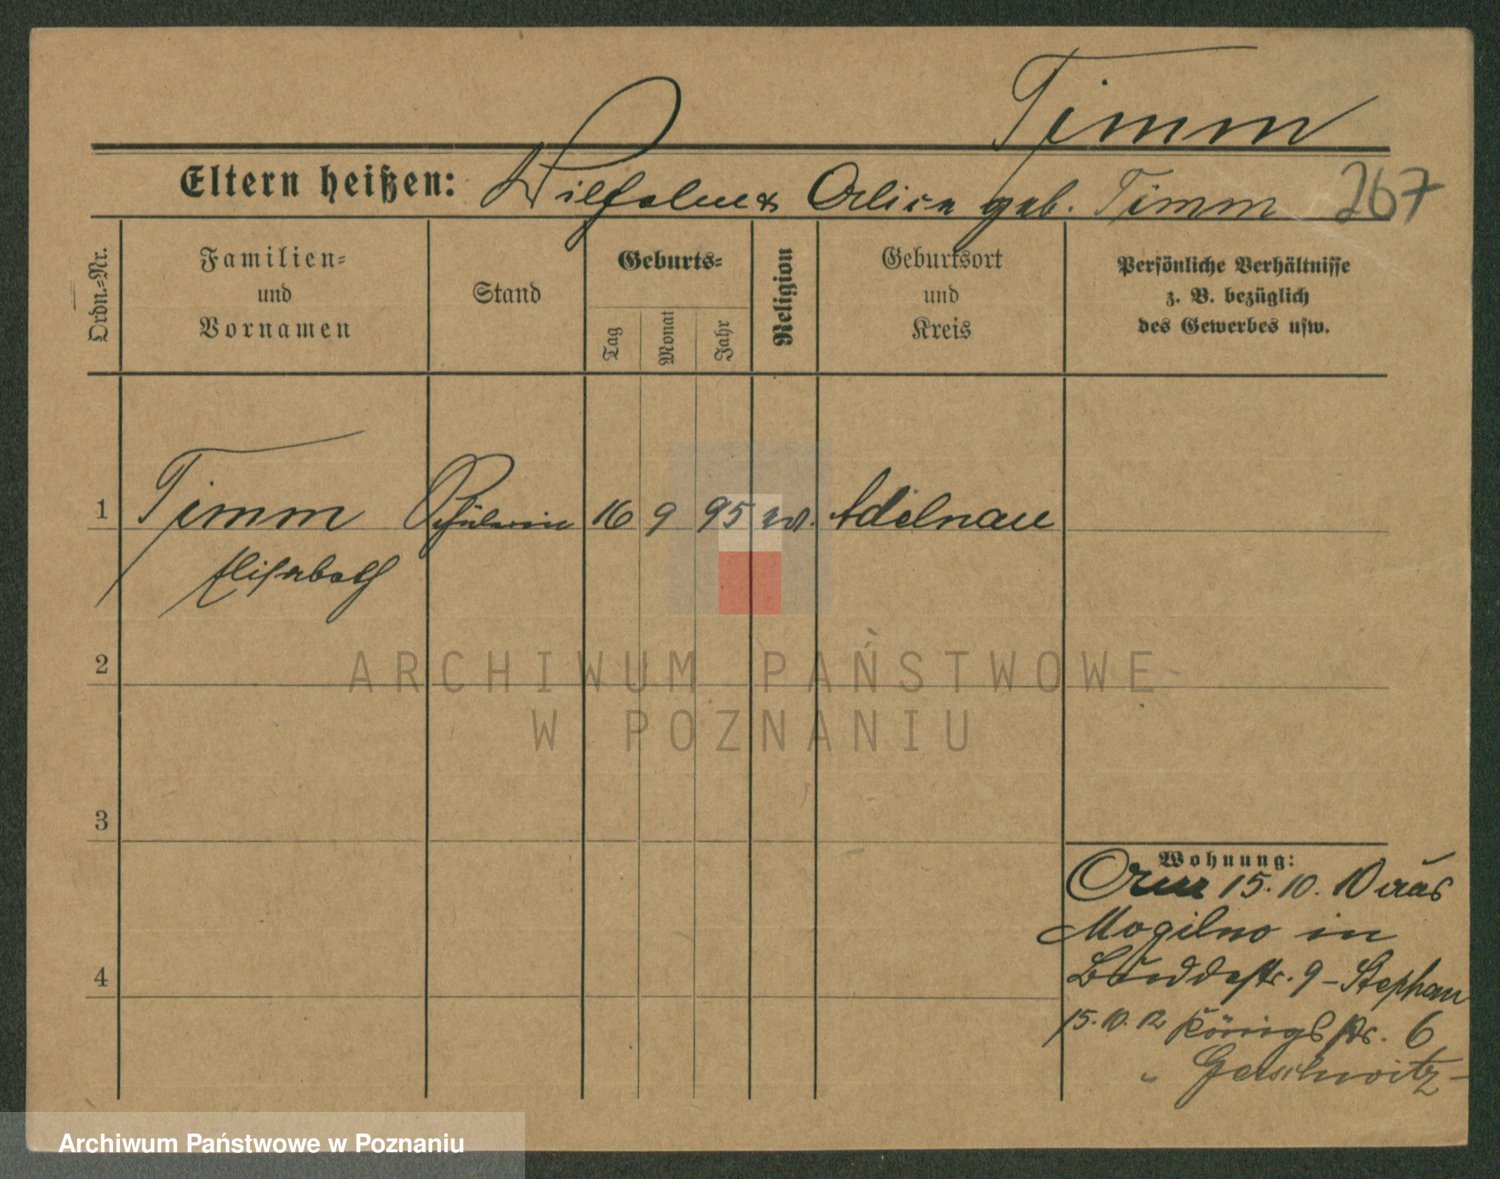 Timm
Eltern heißen: Wilhelm & geb. Timm 267
Ordn.-Nr.
Familien-
und
Vornamen
Stand
Geburts-
Tag
Monat
Jahr
Religion
Geburtsort
und
Kreis
Persönliche Verhältnisse
z. B. bezüglich
des Gewerbes usw.
1 Timm Schülerin 16 9 95 Adelnau
Elisabeth
2
3
4
Wohnung:
15. 10. 10 aus
Mogilno in
Buddestr. 9 - Stephan
15.10.12 Königsstr. 6
" Gerschwitz -
ARCHIWUM PAŃSTWOWE
W POZNANIU
Archiwum Państwowe w Poznaniu